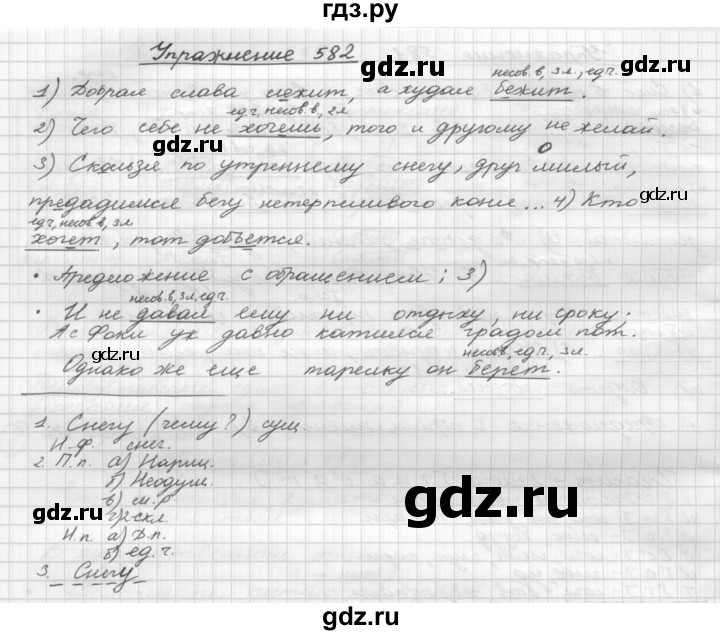 гдз.ру
Упражнение 582
несов.в, 3л., ед.ч.
1) Добрая слава лежит, а худая бежит.
ед.ч, несов.в, 2л
2) Чего себе не хочешь, того и другому не желай.
О
3) Скользя по утреннему снегу, друг милый,
предадимся бегу нетерпеливого коня... 4) Кто
ед.ч, несов.в, 3л
хочет, тот добъется.
• Предложение с обращением: 3)
несов.в, 3л, ед.ч.
• И не давал ему ни отдыху, ни сроку.
А с Фоки уж давно катился градом пот.
несов.в, ед.ч., 3л.
Однако же еще тарелку он берет.
1. Снегу (чему?) сущ.
Н.ф. снег.
2. П.п. а) Нариц.
б) Неодуш.
в) м.р
г) 2 скл
Н.п. а) Д.п.
б) ед.ч.
3. Снегу
gdz.ru
gdz.ru
gdz.ru
gdz.ru
gdz.ru
gdz.ru
gdz.ru
gdz.ru
gdz.ru
gdz.ru